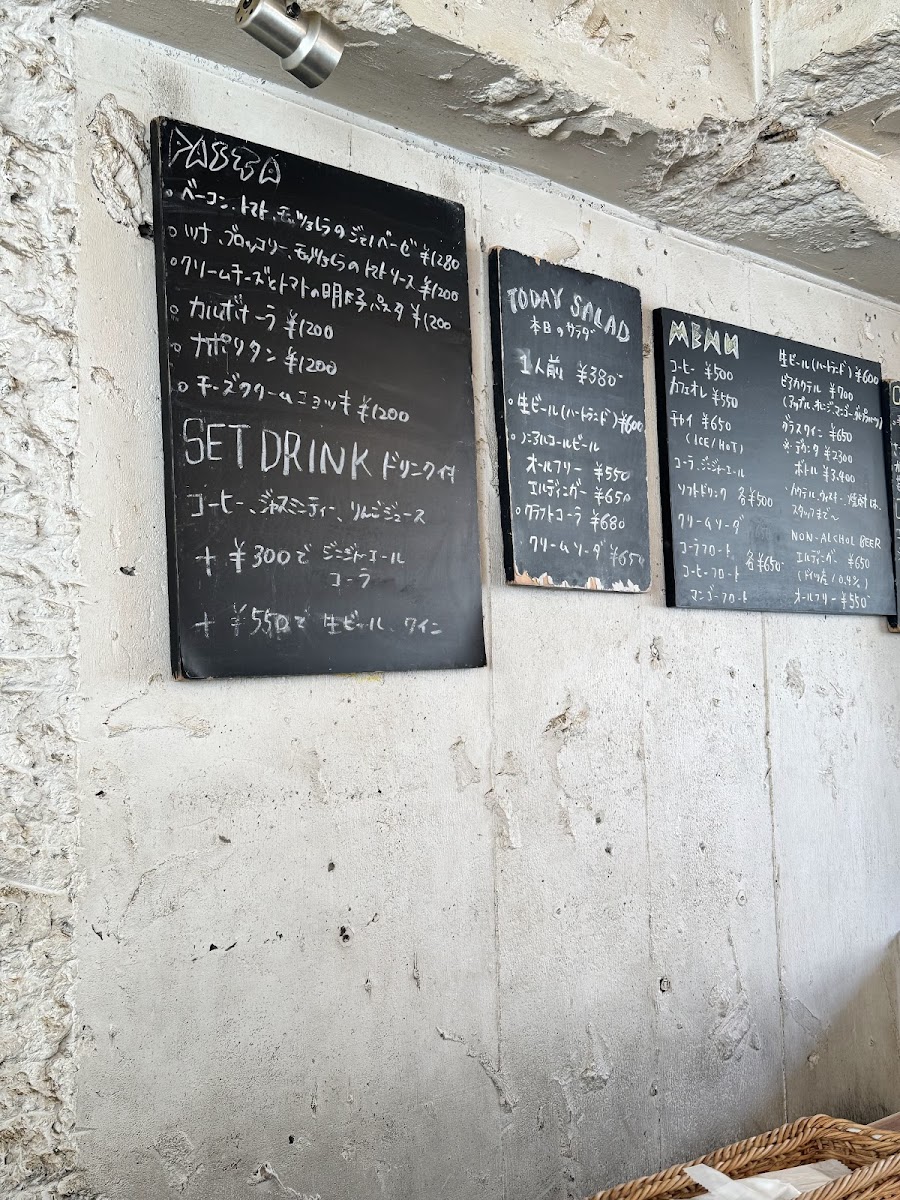 PASTA
。ベーコン、トマト、モッツァレラのジェノベーゼ ¥1280
。ツナ、ブロッコリー、モッツァレラのトマトソース ¥1200
。クリームチーズとトマトの明太子パスタ ¥1200
。カルボナーラ ¥1200
。ナポリタン ¥1200
。チーズクリームニョッキ ¥1200
SET DRINK ドリンク付
コーヒー、ジャスミンティー、りんごジュース
+ ¥300で ジンジャーエール
コーラ
+ ¥550で 生ビール、ワイン
TODAY SALAD
本日のサラダ
1人前 ¥380-
。生ビール(ハートランド) ¥600
。ノンアルコールビール
オールフリー ¥550
エルディンガー ¥650
。クラフトコーラ ¥680
クリームソーダ ¥650
MENU
コーヒー ¥500
カフェオレ ¥550
チャイ ¥650
(ICE/HOT)
コーラ、ジンジャーエール
ソフトドリンク 各¥500
クリームソーダ
コーラフロート 各¥650-
コーヒーフロート
マンゴーフロート
生ビール(ハートランド) ¥600
ビアカクテル ¥700
グラスワイン ¥650
※デカンタ ¥2300
ボトル ¥3,400
・カクテル、ウィスキー、焼酎は、
スタッフまで〜
NON-ALCHOL BEER
エルディンガー ¥650
(ドイツ産/0.4%)
オールフリー ¥550-